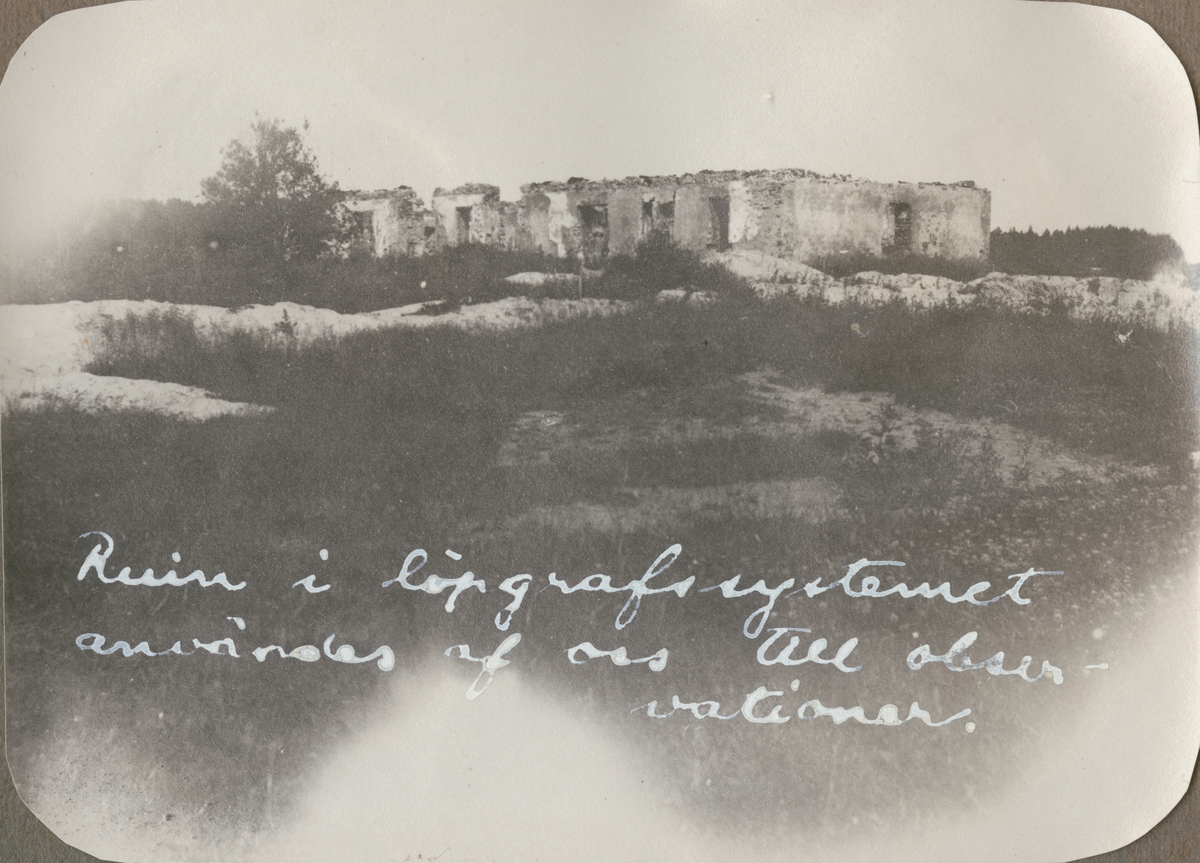 Ruin i löpgrafssystemet
användes af oss till obser-
vationer.